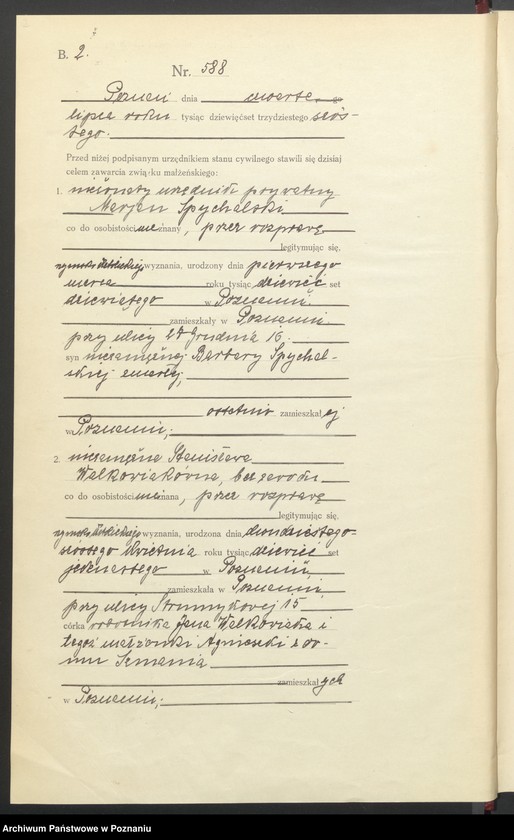 B. 2.
Nr. 588
Poznań dnia czwartego
lipca roku tysiąc dziewięćset trzydziestego szós-
tego.
Przed niżej podpisanym urzędnikiem stanu cywilnego stawili się dzisiaj
celem zawarcia związku małżeńskiego:
1. nieżonaty urzędnik prywatny
Marjan Spychalski
co do osobistości nieznany, przez rozprawę
legitymując się,
rzymsko-katolickiej wyznania, urodzony dnia pierwszego
marca roku tysiąc dziewięć set
dziewiątego w Poznaniu
zamieszkały w Poznaniu
przy ulicy 27 Grudnia 16.
syn niezamężnej Barbary Spychal-
skiej zmarłej,
ostatnio zamieszkałej
w Poznaniu;
2. niezamężna Stanisława
Walkowiakówna, bez zawodu
co do osobistości nieznana, przez rozprawę
legitymując się,
rzymsko-katolickiej wyznania, urodzona dnia dwudziestego-
szóstego kwietnia roku tysiąc dziewięć set
jedenastego w Poznaniu
zamieszkała w Poznaniu
przy ulicy Strumykowej 15
córka robotnika Jana Walkowiaka i
tegoż małżonki Agnieszki z do-
mu Szmania
zamieszkałych
w Poznaniu;
Archiwum Państwowe w Poznaniu